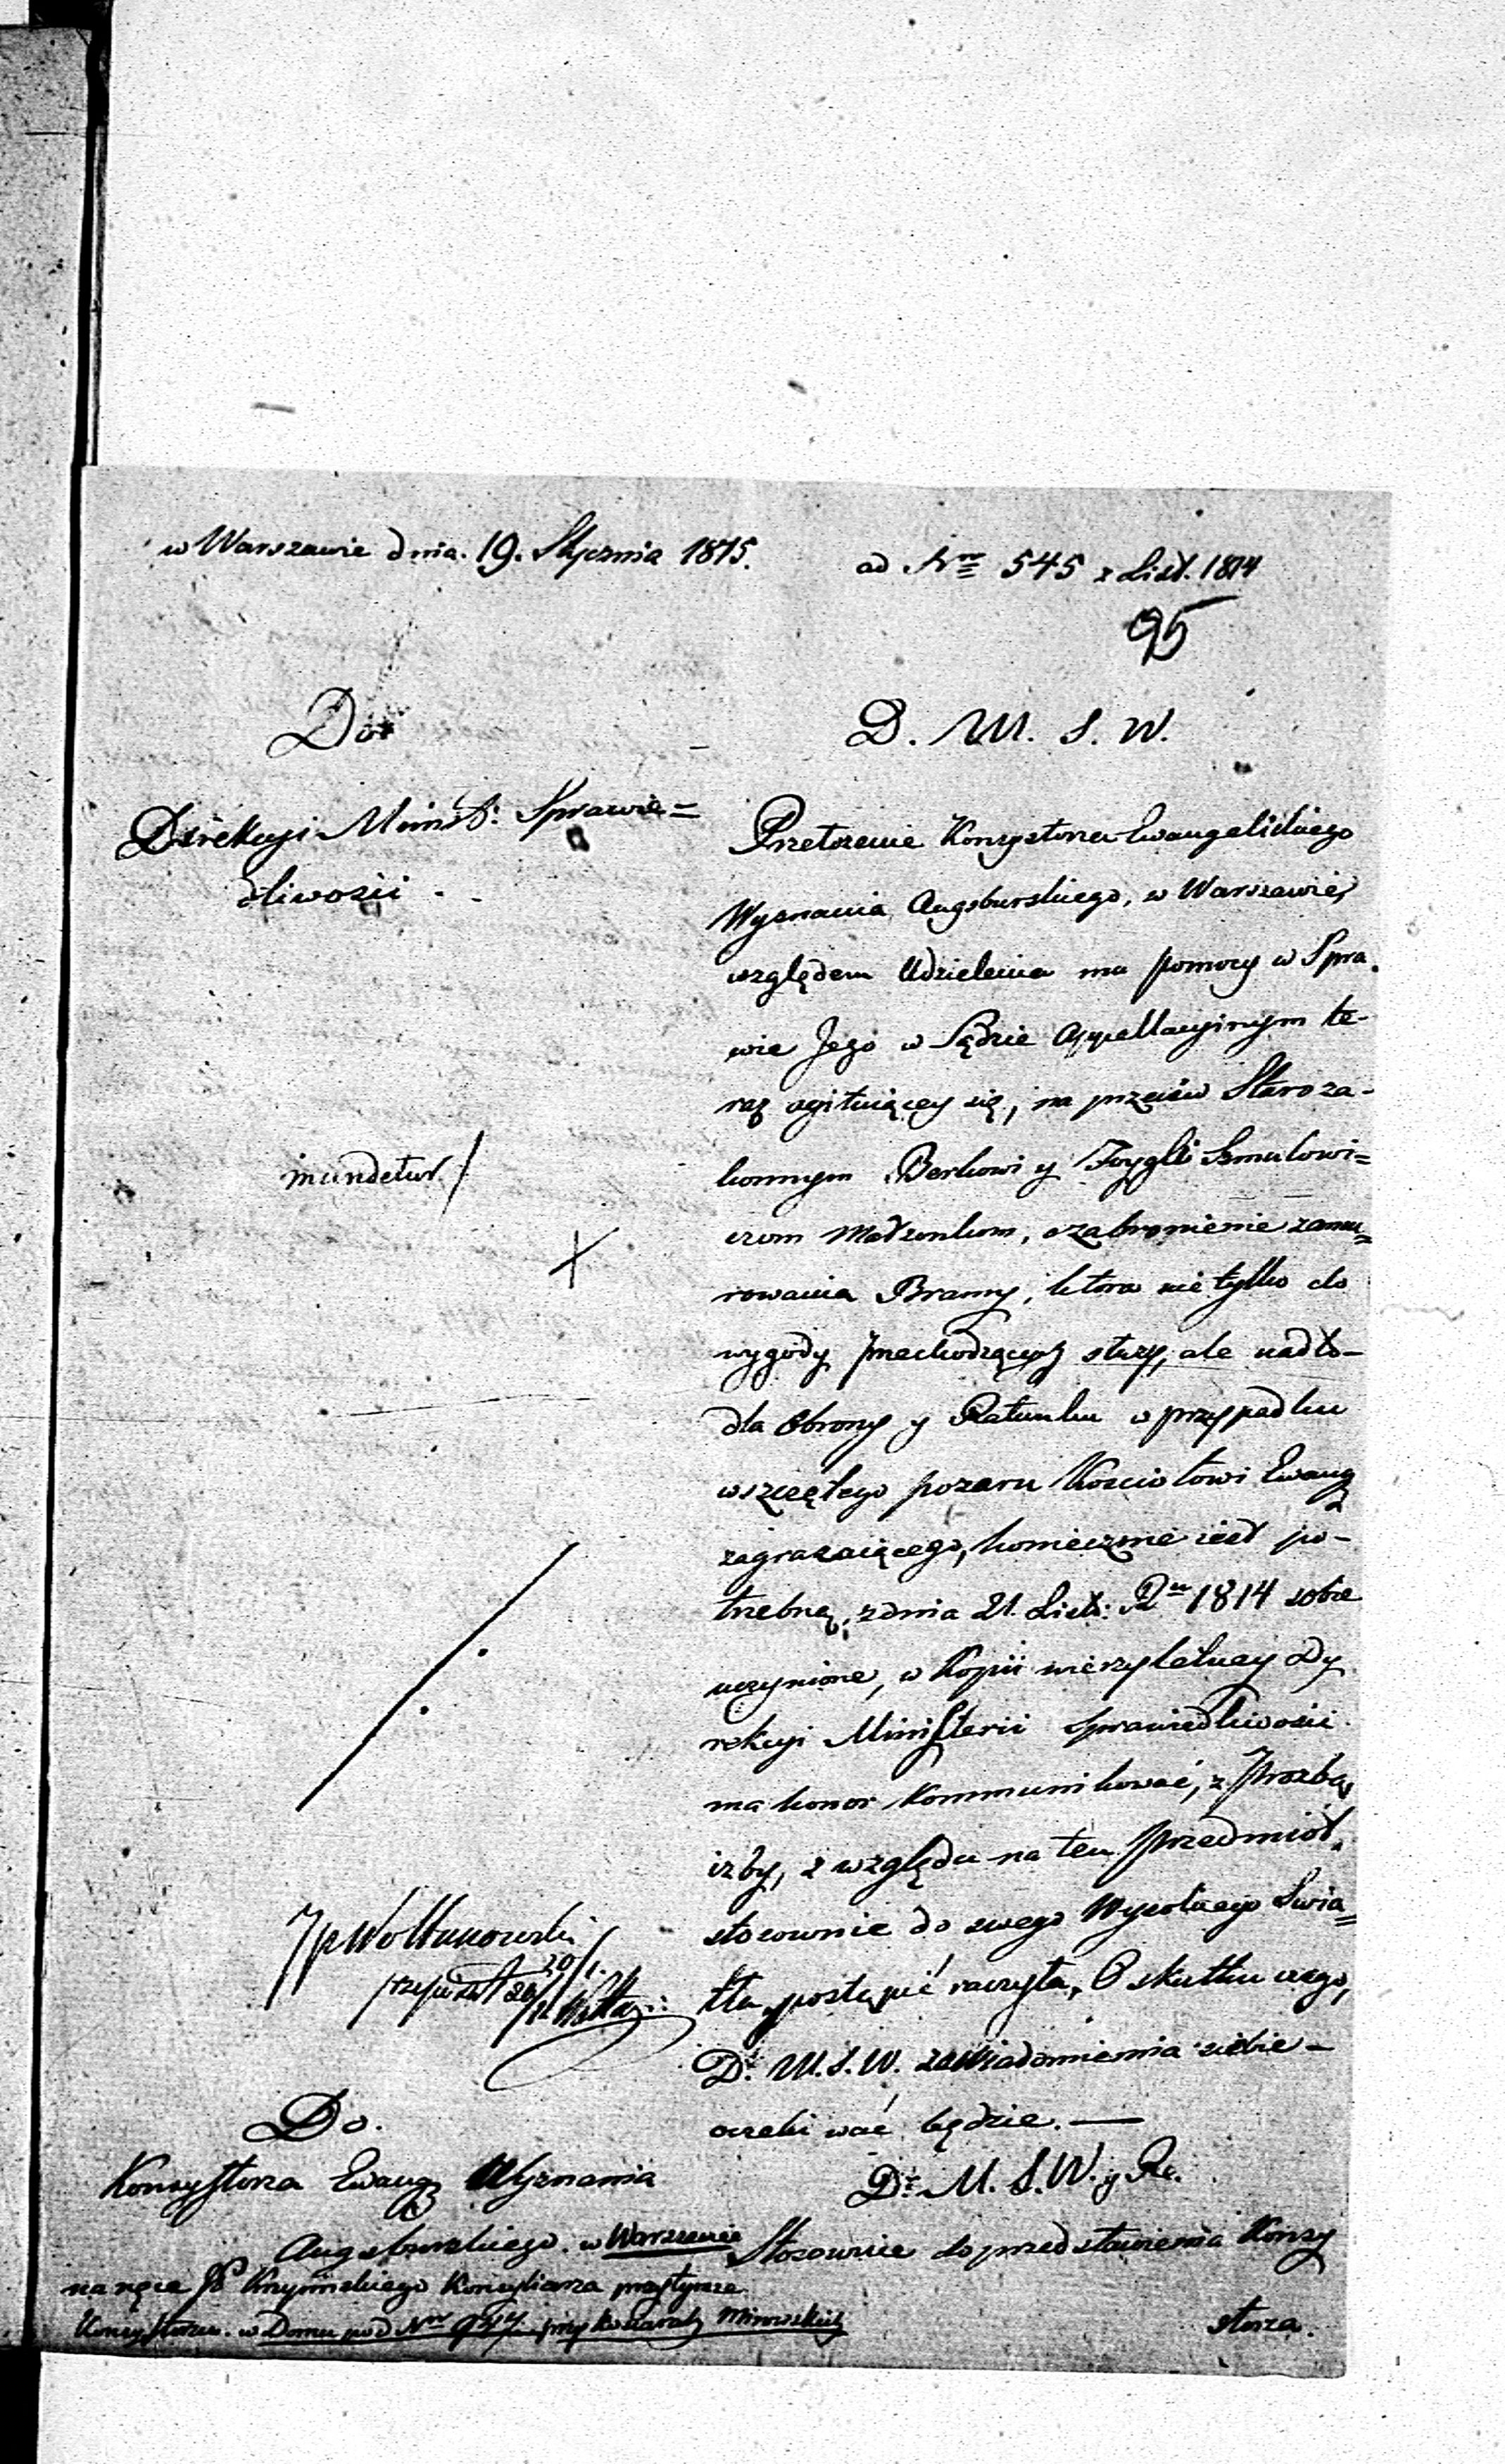 w Warszawie dnia. 19. Stycznia 1815.
ad Nrm 545 z List. 1814
95
Do
Dyrekcyi Minist: Sprawie=
dliwości.
D. M. S. W.
Przełożenie Konsystorza Ewangelickiego
Wyznania Augsburskiego, w Warszawie,
względem Udzielenia mu pomocy w Spra.
wie Jego w Sądzie Appellacyinym te-
raz agituiącey się, na przeciw Staroza-
konnym Berkowi y Foygli Szmulowi=
czom Małżonkom, o zabronienie zamu=
rowania Bramy, która nie tylko do
wygody przechodzących służy, ale nadto-
dla Obrony y Ratunku w przypadku
wszczętego pożaru Kościołowi Ewang
zagrażaiącego, koniecznie iest po-
trzebną, z dnia 21. List: Ru 1814 sobie
uczynione, w Kopii wierzytelney Dy
rekcyi Ministerii Sprawiedliwości
ma honor Kommunikować, z Prozbą,
iżby, z względu na ten Przedmiot,
stosownie do swego Wysokiego Swia=
tła postąpić raczyła, O skutku czego,
D. M. S. W. zawiadomienia siebie-
oczekiwać będzie. —
mundetur /
JpWoltanowski
20/1.
Do.
Konsystorza Ewang Wyznania
Augsburskiego. w Warszawie
na ręce JP Krysińskiego Konsyliarza przytymże
Konsystorzu. w Domu pod Nrm 937 przy Koszarach Mirowskich
D. M. S. W. y Re.
Stosownie do przedstawienia Konsy
storza.